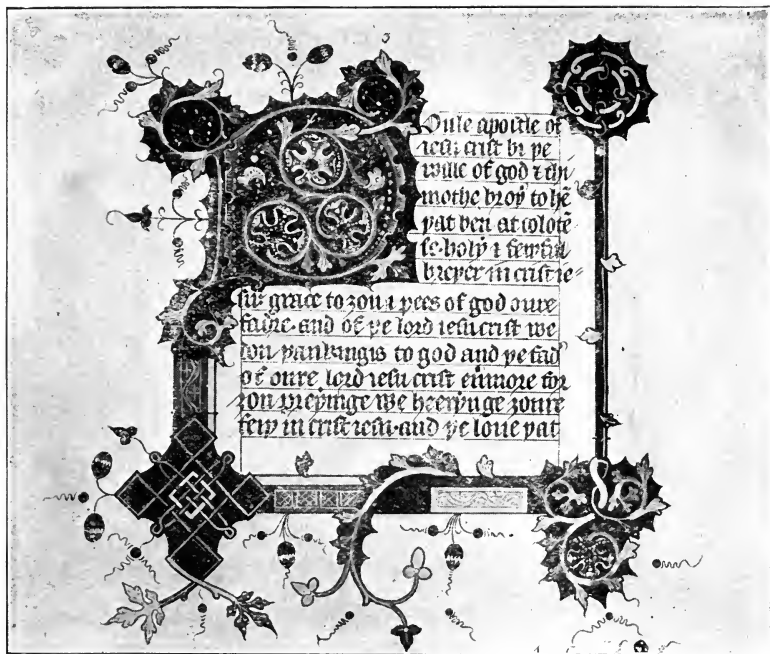 Poule apostle of
iesu crist bi þe
wille of god ⁊ thi/
mothe broþ̉ to hē
þat ben at colocē
se holy ⁊ feiþful
breþer in crist ie=
su: grace to ȝou ⁊ pees of god oure
fadre· and of þe lord iesu crist we
don þankingis to god and þe fad̉
of oure lord iesu crist eũmore for
ȝou preiynge we heerynge ȝoure
feiþ in crist iesu· and þe loue þat